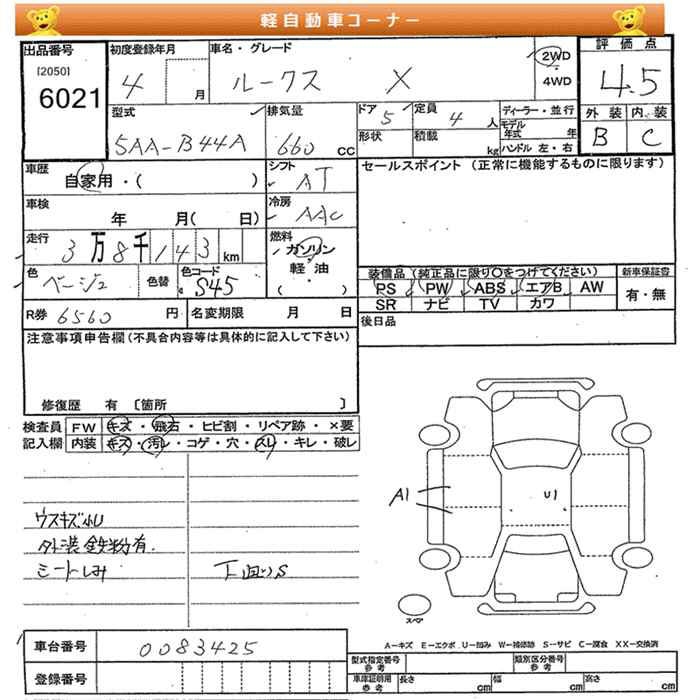 軽自動車コーナー
出品番号
[2050]
6021
初度登録年月
4 月
車名・グレード
ルークス X
2WD
4WD
評価点
4.5
外装 内装
B C
型式
5AA-B44A
排気量
660 CC
ドア 5
形状
定員 4 人
積載 kg
ディーラー・並行
モデル年式 年
ハンドル 左・右
車歴
自家用・( )
シフト
AT
セールスポイント (正常に機能するものに限ります)
車検
年 月( 日)
冷房
AAC
走行
3万8千143 km
燃料
ガソリン
軽・油
( ・ )
色
ベージュ
色替
色コード
S45
装備品(純正品に限り○をつけてください)
新車保証書
PS PW ABS エアB AW
有・無
SR ナビ TV カワ
R券 6560 円
名変期限 月 日
後日品
注意事項申告欄(不具合内容等は具体的に記入して下さい)
修復歴 有 〔箇所 〕
検査員 FW キズ・飛石・ヒビ割・リペア跡・×要
記入欄 内装 キズ・汚レ・コゲ・穴・スレ・キレ・破レ
A1
U1
ウスキズ小U
外装鉄粉有.
シートしみ
下回りS
スペア
車台番号
0083425
登録番号
A−キズ E−エクボ U−凹み W−補修跡 S−サビ C−腐食 XX−交換済
型式指定番号
参考
類別区分番号
参考
車庫証明用
参考
長さ cm
幅 cm
高さ cm